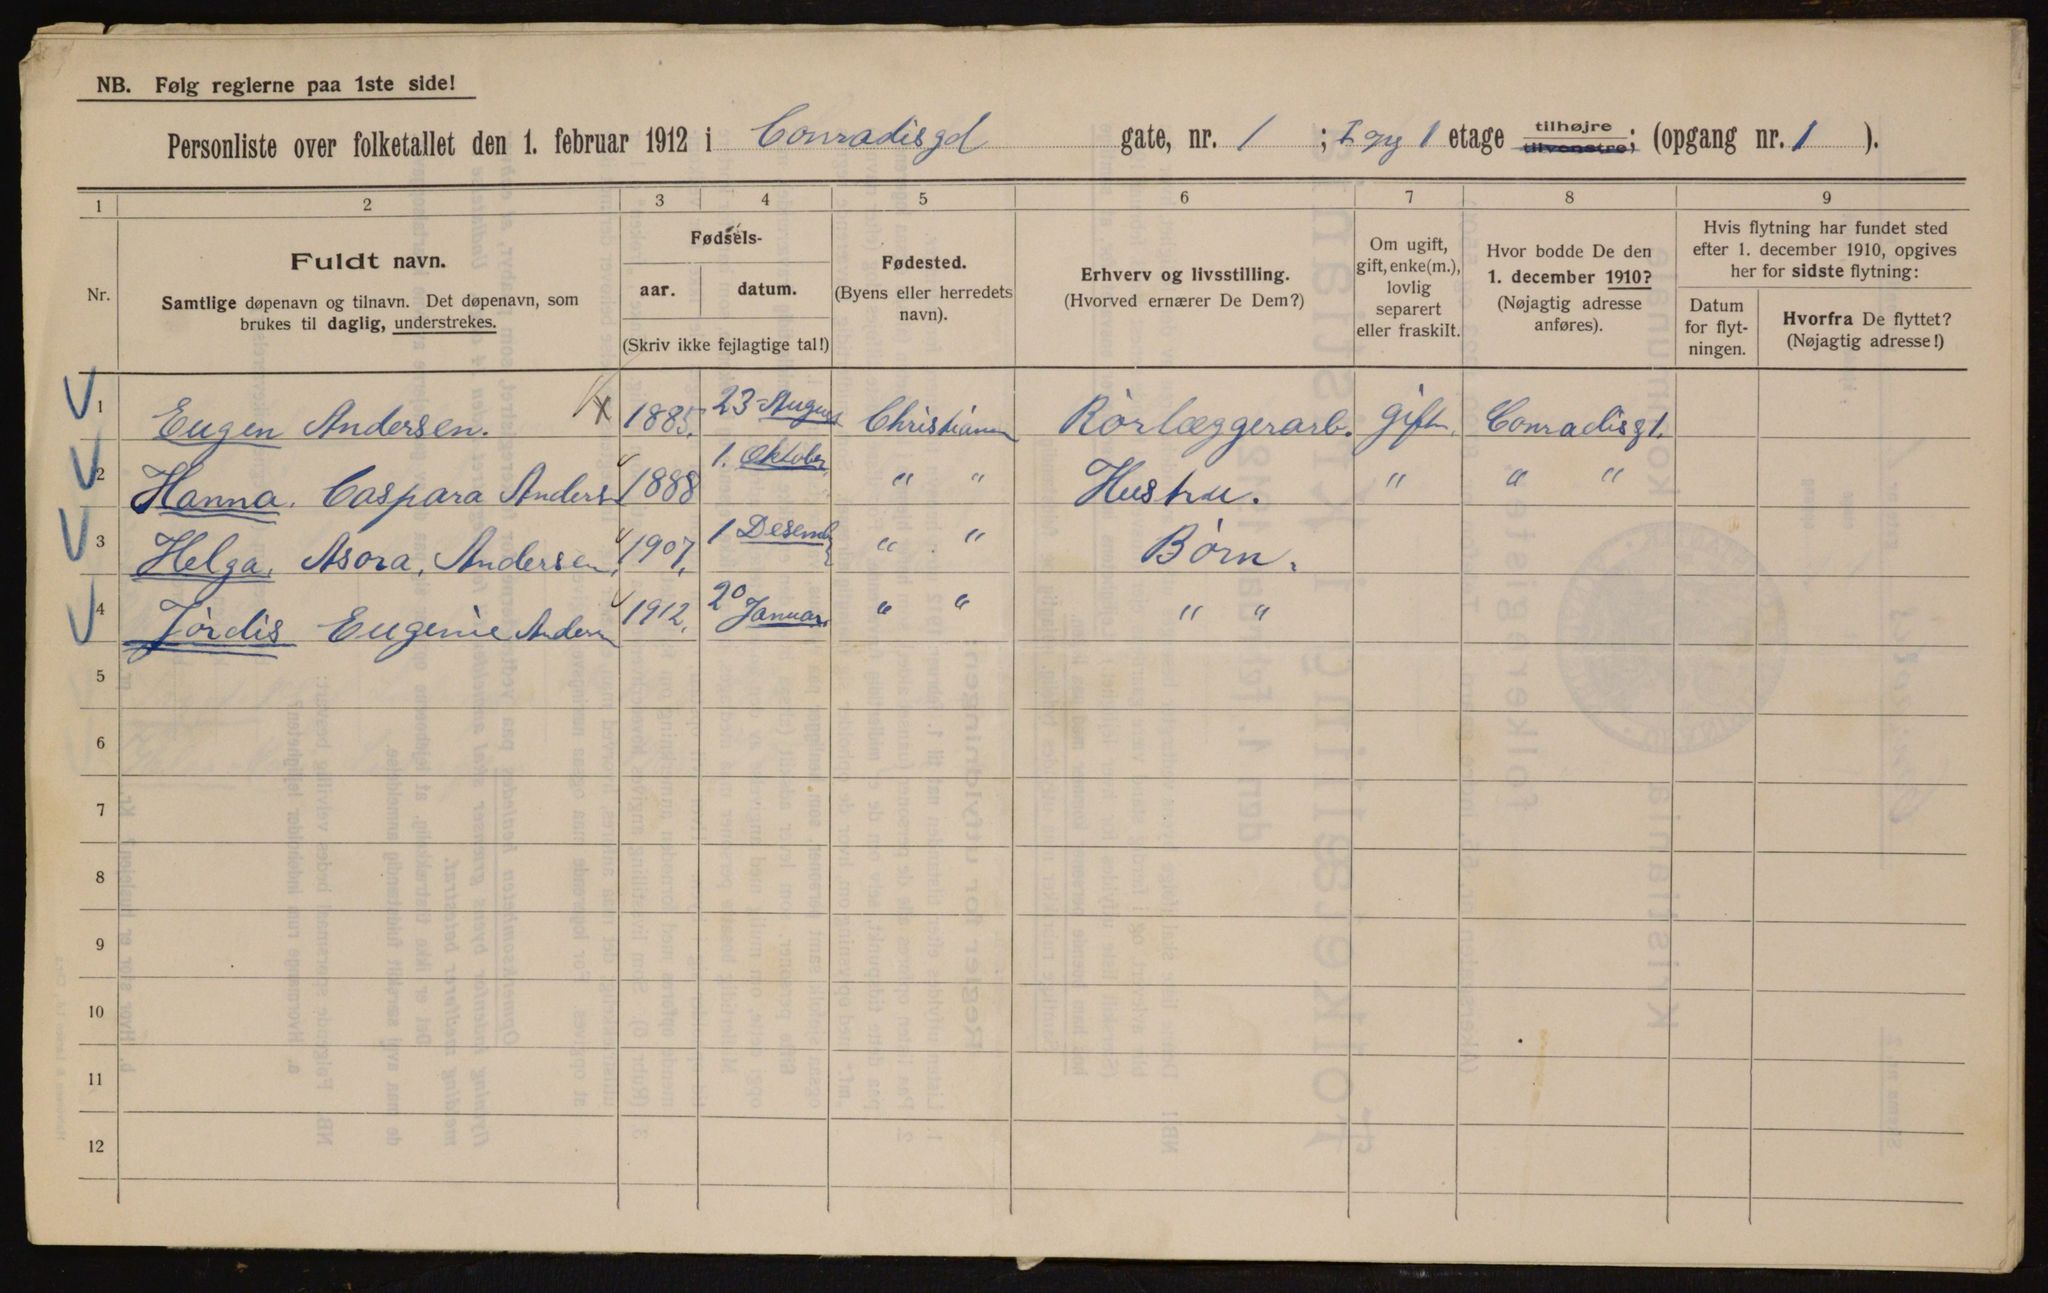 NB. Følg reglerne paa 1ste side!
Personliste over folketallet den 1. februar 1912 i Conradisgd gate, nr. 1 ; I opg 1 etage tilhøjre tilvenstre; (opgang nr. 1 ).
1 2 3 4 5 6 7 8 9
Nr.
Fuldt navn.
Samtlige døpenavn og tilnavn. Det døpenavn, som
brukes til daglig, understrekes.
Fødsels-
aar. datum.
(Skriv ikke fejlagtige tal!)
Fødested.
(Byens eller herredets
navn).
Erhverv og livsstilling.
(Hvorved ernærer De Dem?)
Om ugift,
gift, enke(m.),
lovlig
separert
eller fraskilt.
Hvor bodde De den
1. december 1910?
(Nøjagtig adresse
anføres).
Hvis flytning har fundet sted
efter 1. december 1910, opgives
her for sidste flytning:
Datum
for flyt-
ningen.
Hvorfra De flyttet?
(Nøjagtig adresse!)
1 Eugen Andersen. 1885. 23 August Christiania Rörlæggerarb. gift. Conradisgt.
2 Hanna. Caspara Anders 1888 1. Oktober " " Hustru. " " "
3 Helga. Asora. Andersen. 1907. 1 Desemb " " Børn.
4 Jördis Eugenie Andersen 1912. 20 Januar. " " " "
5
6
7
8
9
10
11
12